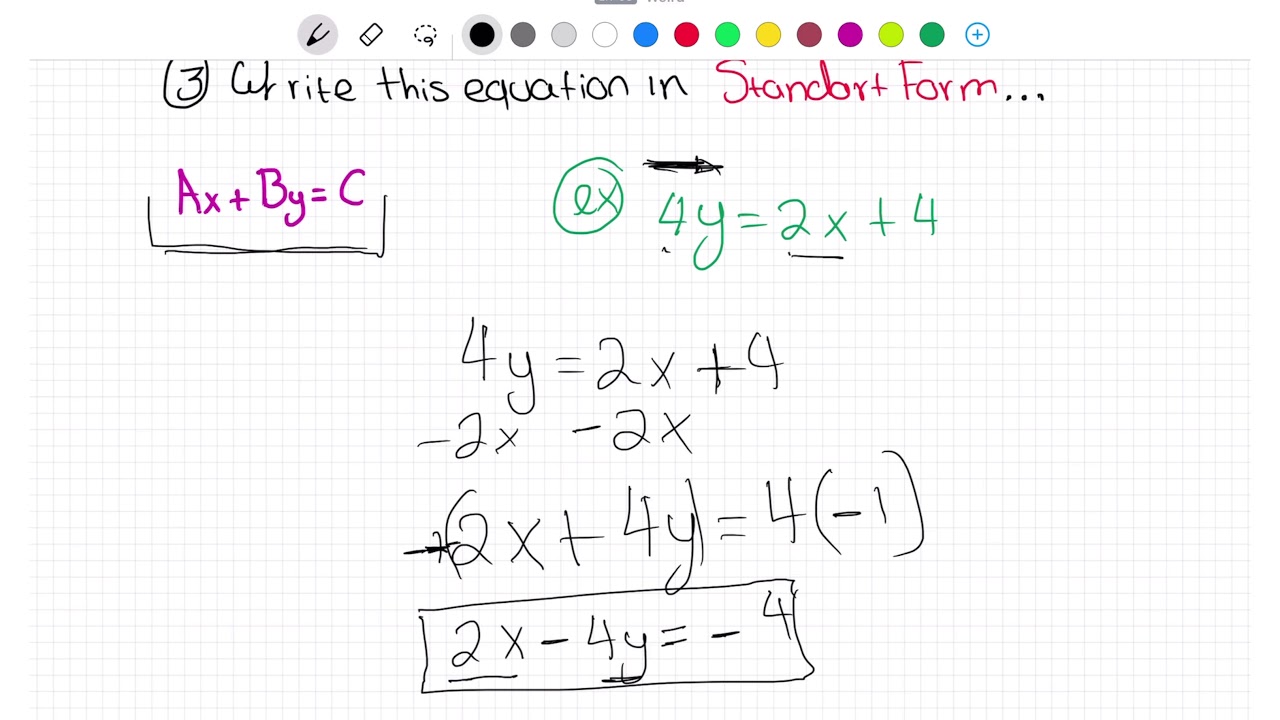 ③ Write this equation in Standart Form...
Ax + By = C
ex 4y = 2x + 4
4y = 2x + 4
-2x -2x
-(2x + 4y) = 4(-1)
2x - 4y = - 4